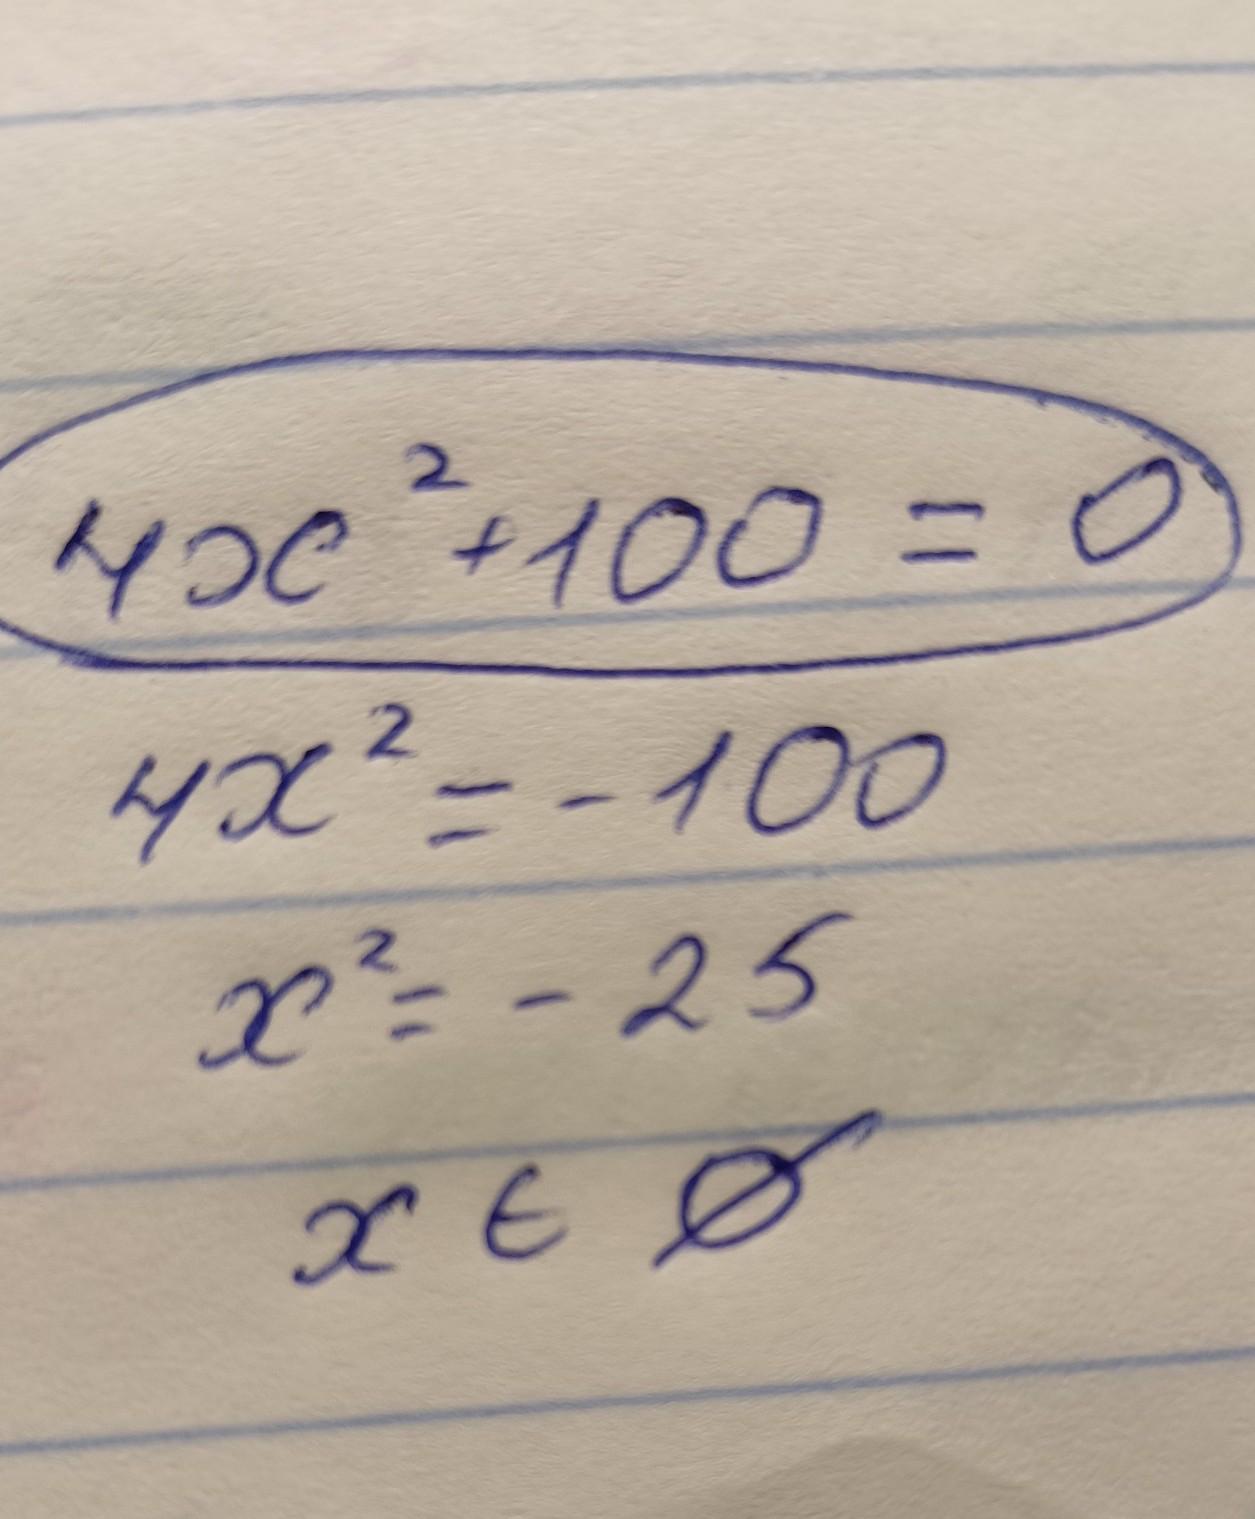 4x² + 100 = 0
4x² = - 100
x² = - 25
x ∈ ∅